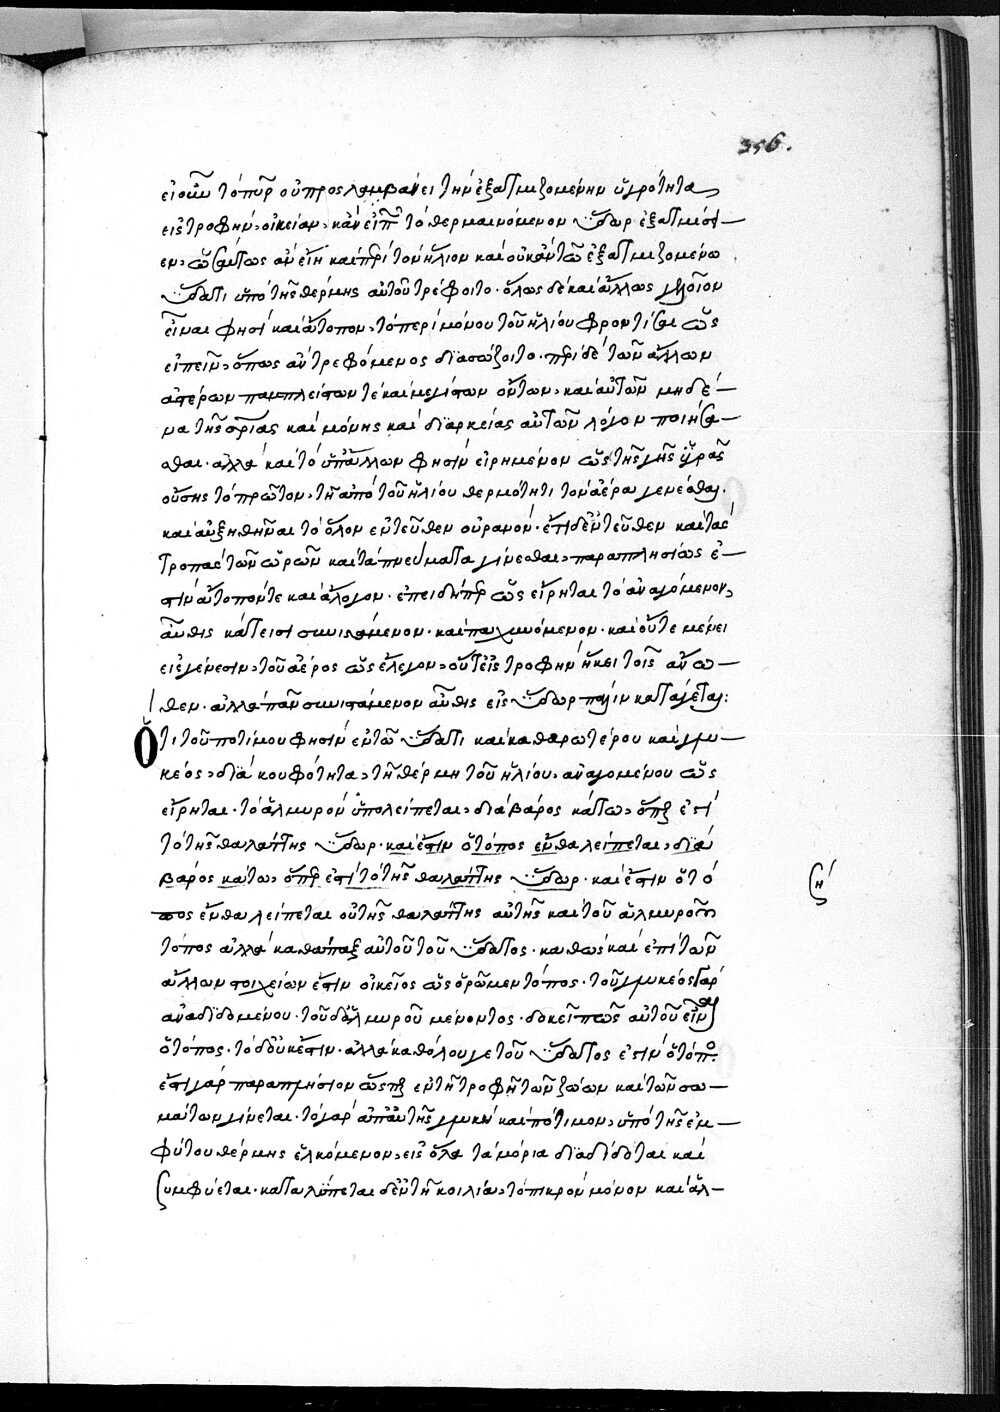 356.
εἰ οὖν τὸ πῦρ οὐ προσλαμβάνει τὴν ἐξατμιζομένην ὑγρότητα,
εἰς τροφὴν, οἰκείαν, κἀν εἰ π τὸ θερμαινόμενον ὕδωρ ἐξατμίσει
εν, ὡσαύτως ἂν εἴη καὶ περὶ τὸν ἥλιον καὶ οὐκ ἂν τῷ ἐξατμιζομένῳ
ὕδατι ὑπὸ τῆς θέρμης αὐτοῦ τρέφοιτο. ὅλως δὲ καὶ ἄλλως γελοῖον
εἶναι φησὶ καὶ ἄτοπον, τὸ περὶ μόνου τοῦ ἡλίου φροντίσαι ὡς
εἰπεῖν, ὅπως ἂν τρεφόμενος διασώζοιτο. περὶ δὲ τῶν ἄλλων
ἀστέρων παμπλείστων τὲ καὶ μεγίστων ὄντων, καὶ αὐτῶν μηδέ-
να τῆς σριας καὶ μόνης καὶ διαρκείας αὐτῶν λόγον ποιήσα-
σθαι. ἀλλὰ καὶ τὸ ὑπ' ἄλλων φησὶν εἰρημένον ὡς τῆς γῆς ὑγρᾶς
οὔσης τὸ πρῶτον, τῇ ἀπὸ τοῦ ἡλίου θερμότητι τὸν ἀέρα γενέσθαι.
καὶ αὐξηθῆναι τὸ ὅλον ἐντεῦθεν οὐρανόν. ἔτι δ' ἐντεῦθεν καὶ τὰς
τροπὰς τῶν ὡρῶν καὶ τὰ πνεύματα γίνεσθαι, παραπλησίως ἐ-
στὶν ἄτοπόν τε καὶ ἄλογον. ἐπειδήπερ ὡς εἴρηται τὸ ἀναγόμενον,
αὖθις κάτεισι συνιστάμενον. καὶ παχυνόμενον. καὶ οὔτε μένει
εἰς γένεσιν, τοῦ ἀέρος ὡς ἔλεγον, οὔτ' εἰς τροφὴν ἥκει τοῖς ἄνω-
θεν. ἀλλὰ πᾶν συνιστάμενον αὖθις εἰς ὕδωρ πάλιν κατάγεται:
Ὅτι τοῦ ποτίμου φησὶν ἐν τῷ ὕδατι καὶ καθαρωτέρου καὶ γλυ-
κέος, διὰ κουφότητα, τῇ θέρμῃ τοῦ ἡλίου, ἀναγομένου ὡς
εἴρηται. τὸ ἁλμυρὸν ὑπολείπεται, διὰ βάρος κάτω, ὅπερ ἐστὶ
τὸ τῆς θαλάττης ὕδωρ. καὶ ἔστιν ὁ τόπος ἔνθα λείπεται, διὰ
βάρος κάτω, ὅπερ ἐστὶ τὸ τῆς θαλάττης ὕδωρ. καὶ ἔστιν ὁ τό
πος ἔνθα λείπεται οὐ τῆς θαλάττης αὐτῆς καὶ τοῦ ἁλμυροῦ
τόπος ἀλλὰ καθάπαξ αὐτοῦ τοῦ ὕδατος. καθὼς καὶ ἐπὶ τῶν
ἄλλων στοιχείων ἔστιν οἰκεῖος ὡς ὁρῶμεν τόπος. τοῦ γλυκέος γὰρ
ἀναδιδομένου. τοῦ δ' ἁλμυροῦ μένοντος. δοκεῖ πως αὐτοῦ εἶναι
ὁ τόπος. τὸ δ' οὐκ ἔστιν. ἀλλὰ καθόλου γε τοῦ ὕδατος ἐστὶν ὁ τόπος.
ἔστι γὰρ παραπλήσιον ὥσπερ ἐν τῇ τροφῇ τῶν ζώων καὶ τῶν σω-
μάτων γίνεται. τὸ γὰρ ἀπ' αὐτῆς γλυκὺ καὶ πότιμον, ὑπὸ τῆς ἐμ-
φύτου θέρμης ἑλκόμενον, εἰς ὅλα τὰ μόρια διαδίδοται καὶ
συμφύεται. καταλείπεται δ' ἐν τῇ κοιλίᾳ, τὸ πικρὸν μόνον καὶ ἁλ-
ση΄